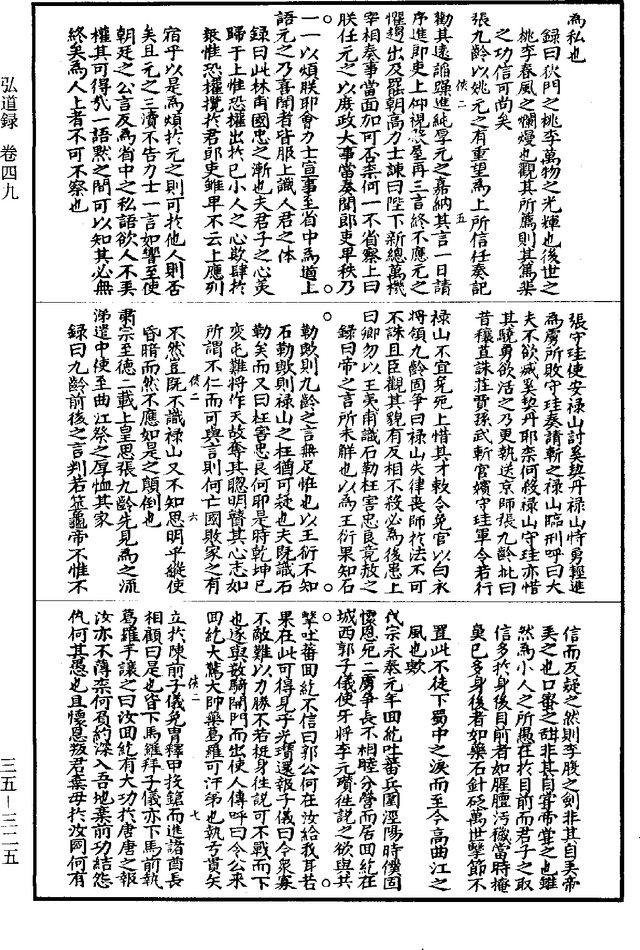 弘道録　卷四九
為私也
録曰狄門之桃李萬物之光輝也後世之
桃李春風之爛熳也觀其所薦則其篤棐
之功信可尚矣
張九齡以姚元之有重望為上所信任奏記
勸其遠諂躁進純厚元之嘉納其言一日請
序進郎吏上仰視殿屋再三言終不應元之
懼趨出及罷朝高力士諫曰陛下新總萬機
宰相奏事當面加可否柰何一不省察上曰
朕任元之以庶政大事當奏聞郎吏早秩乃
一一以煩朕耶會力士宣事至省中為道上
語元之乃喜聞者皆服上識人君之体
録曰此林甫國忠之漸也夫君子之心莫
歸于上惟恐權出於己小人之心欺肆於
銀惟恐權攬於君郎吏雖早不云上應列
宿乎以是為煩於元之則可於他人則否
矣且元之三瀆不告力士一言如響至使
朝廷之公言反為省中之私語欲人不弄
權其可得哉一語黙之間可以知其必無
終矣為人上者不可不察也
張守珪使安祿山討奚契丹祿山恃勇輕進
為虜所敗守珪奏請斬之祿山臨刑呼曰大
夫不欲滅奚契丹耶柰何殺祿山守珪亦惜
其驍勇欲活之乃更執送京師張九齡批曰
昔穰苴誅莊賈孫武斬宮嬪守珪軍令若行
祿山不宜免死上惜其才敕令免官以白衣
將領九齡固爭曰祿山失律喪師於法不可
不誅且臣觀其貌有反相不殺必為後患上
曰卿勿以王夷甫識石勒枉害忠良竟赦之
録曰帝之言所未觧也以為王衍果知石
勒歟則九齡之言無足恠也以王衍不知
石勒歟則祿山之枉猶可疑也夫既識石
勒矣而又曰枉害忠良何耶是時乾坤已
変屯難將作天故奪其聰明瞽其心志如
所謂不仁而可與言則何亡國敗家之有
不然豈既不識祿山又不知思明乎縱使
昏暗而然不應如是之顛倒也
肅宗至德二載上皇思張九齡先見為之流
涕遣中使至曲江祭之厚恤其家
録曰九齡前後之言判若蓍龜帝不惟不
信而反疑之然則李腹之劍非其自弄帝
弄之也口蜜之甜非其自嘗帝嘗之也雖
然為小人之所愚在於目前而君子之取
信多於身後目前者如腥羶污穢當時掩
臭已多身後者如藥石針砭萬世擊節不
置此不徒下蜀中之淚而至今高曲江之
風也歟
代宗永泰元年回紇吐蕃兵圍涇陽時僕固
懷恩死二虜爭長不相睦分營而居回紇在
城西郭子儀使牙將李光瓚往說之欲與共
擊吐蕃回紇不信曰郭公何在汝紿我耳若
果在此可得見乎光瓚還報子儀曰今衆寡
不敵難以力勝不若挺身往說可不戰而下
也遂與數騎開門而出使人傳呼曰令公來
回紇大驚大帥藥葛羅可汗弟也執弓貫矢
立於陳前子儀免冑釋甲投鎗而進諸酋長
相顧曰是也皆下馬羅拜子儀亦下馬前執
葛羅手讓之曰汝回紇有大功於唐唐之報
汝亦不薄柰何負約深入吾地棄前功結怨
仇何其愚也且懷恩叛君棄母於汝國何有
三五—三二一五